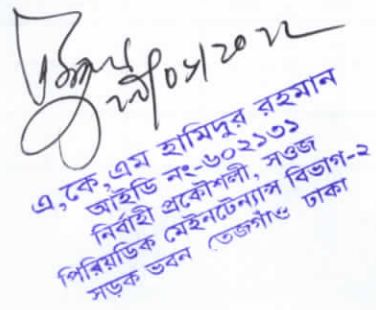 এ,কে,এম হামিদুর রহমান
আইডি নং-৬০২১৩১
নির্বাহী প্রকৌশলী, সওজ
পিরিয়ডিক মেইনটেন্যান্স বিভাগ-২
সড়ক ভবন তেজগাঁও ঢাকা